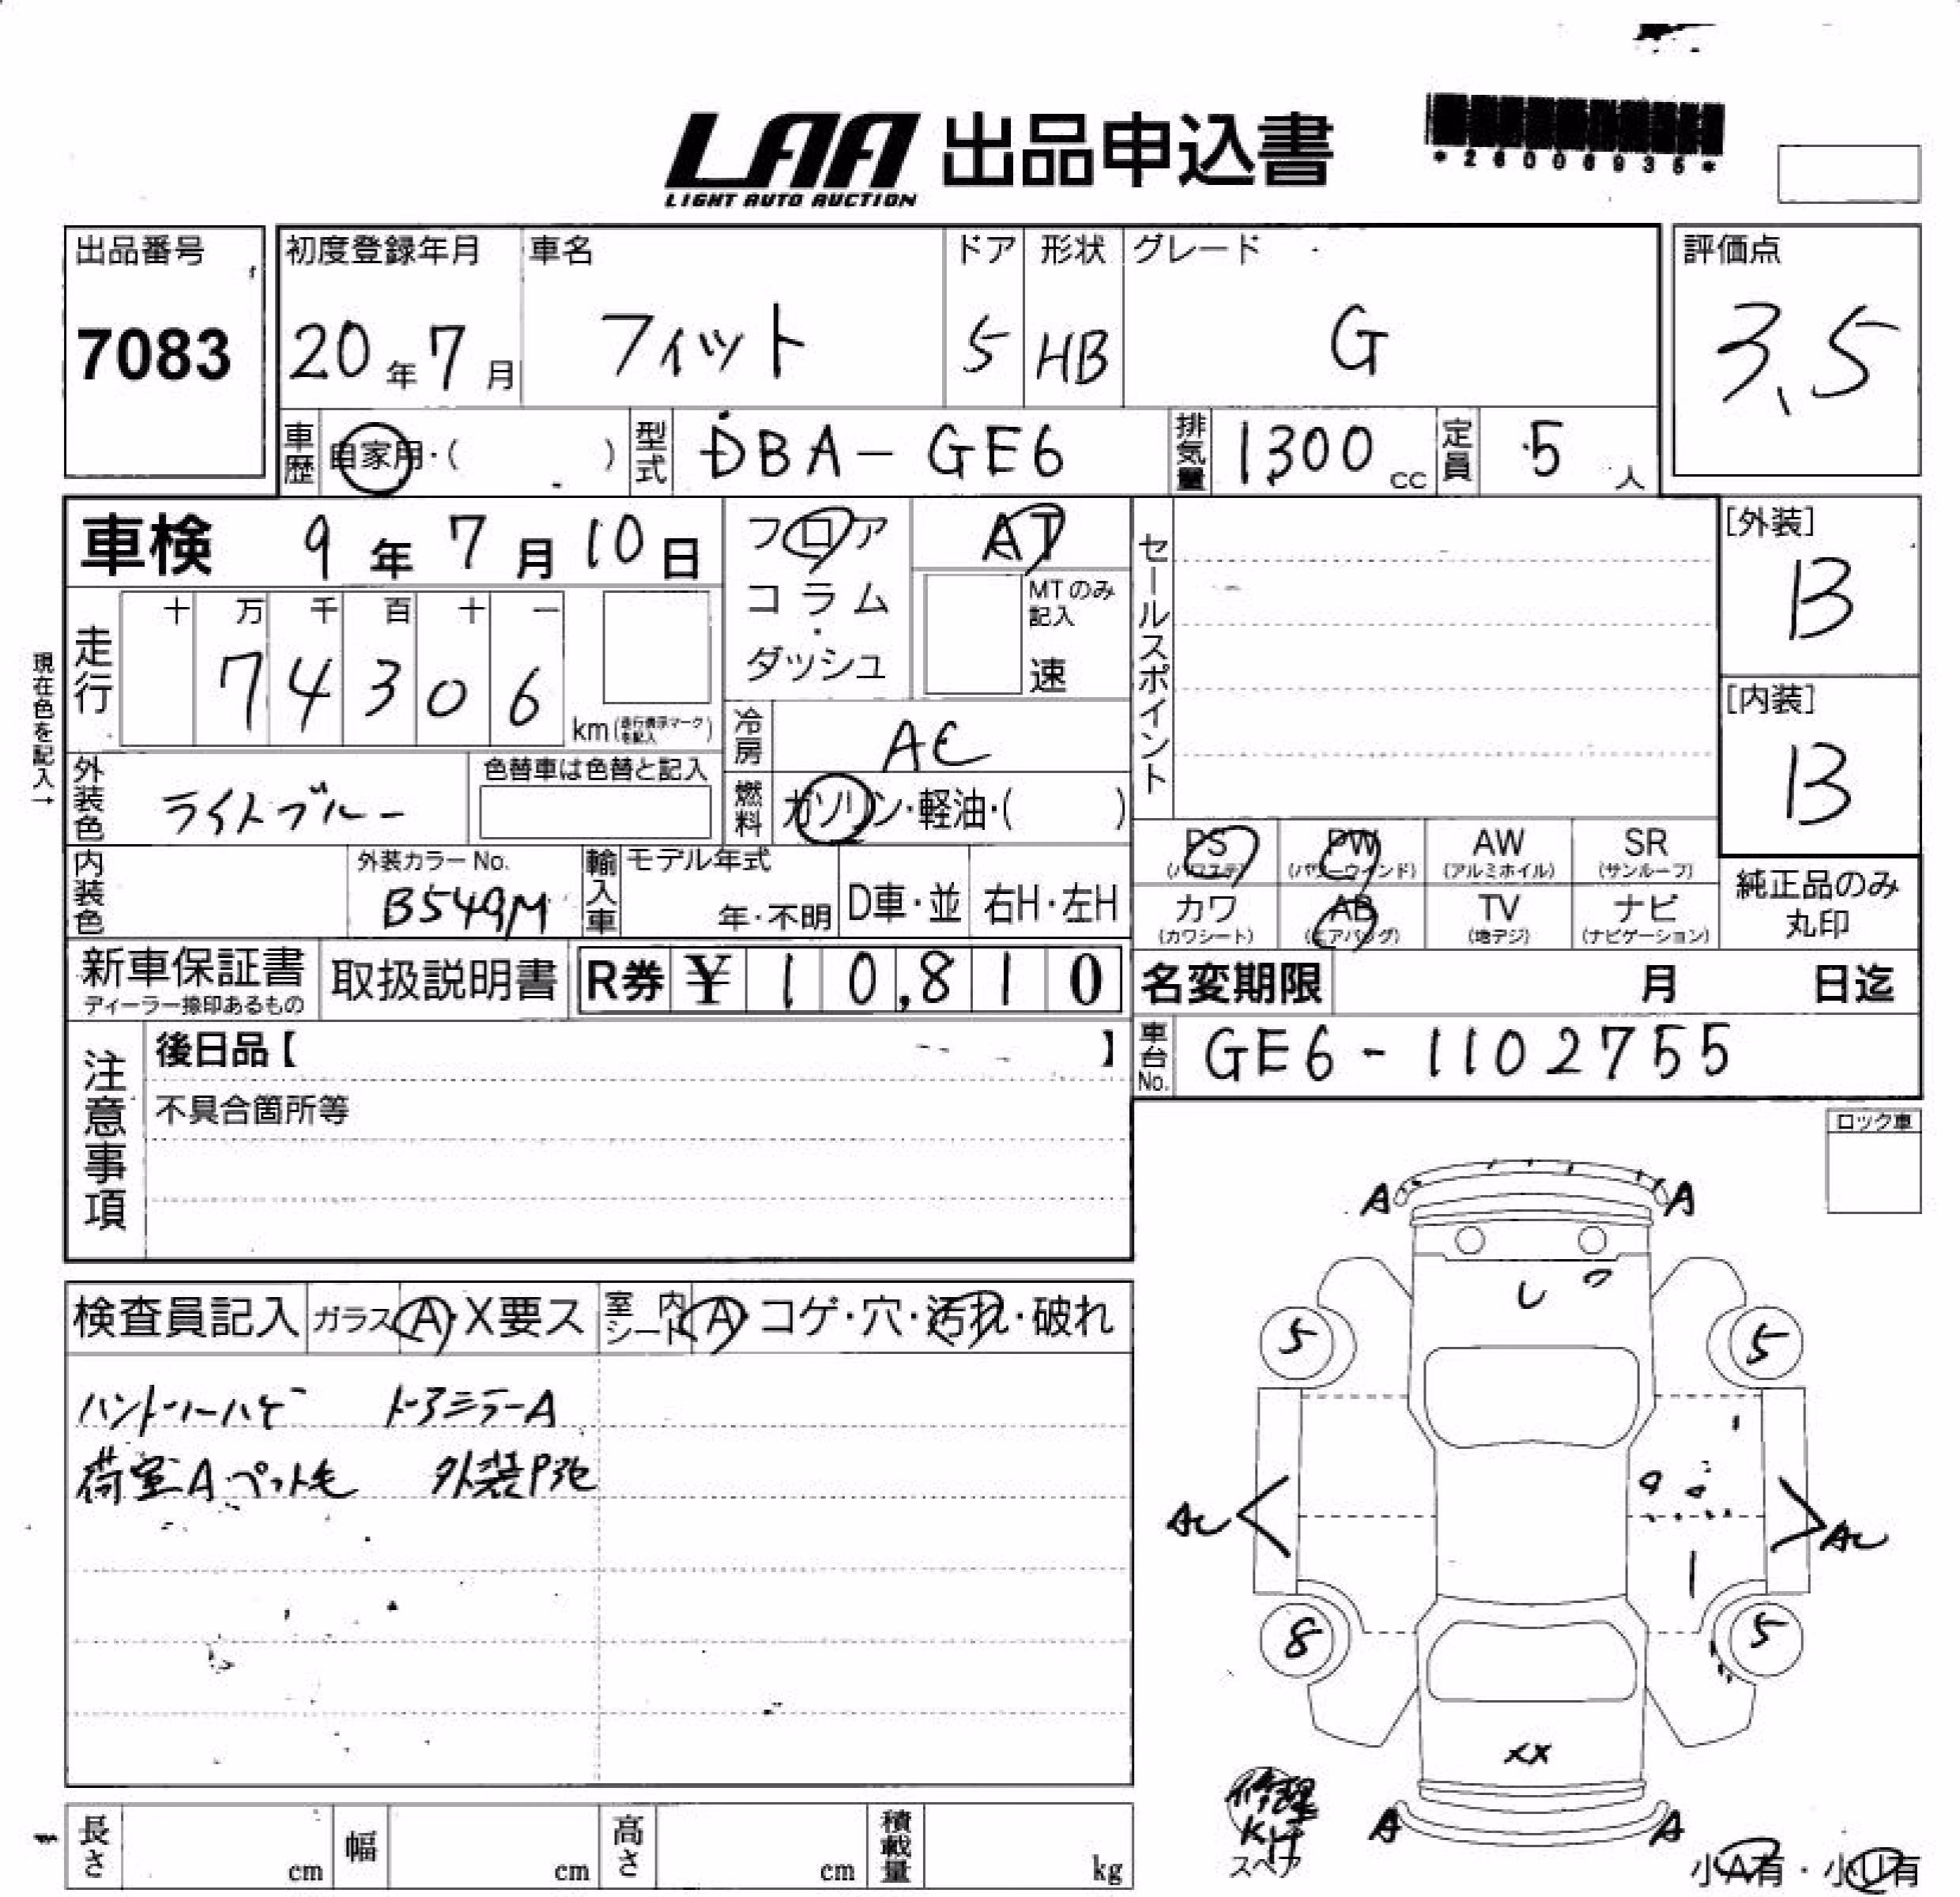 LAA 出品申込書
LIGHT AUTO AUCTION
*26006935*
出品番号
7083
初度登録年月
20年7月
車名
フィット
ドア
5
形状
HB
グレード
G
評価点
3.5
車歴
自家用・( )
型式
DBA-GE6
排気量
1300cc
定員
5人
車検 9年7月10日
フロア
コラム
・
ダッシュ
AT
MTのみ
記入
速
セールスポイント
[外装]
B
[内装]
B
現在色を記入→
走行
十 万 千 百 十 一
7 4 3 0 6
km(走行表示マークを記入)
冷房
AC
外装色
ライトブルー
色替車は色替と記入
燃料
ガソリン・軽油・( )
内装色
外装カラーNo.
B549M
輸入車
モデル年式
年・不明
D車・並
右H・左H
PS
(パワステ)
PW
(パワーウインド)
AW
(アルミホイル)
SR
(サンルーフ)
カワ
(カワシート)
AB
(エアバッグ)
TV
(地デジ)
ナビ
(ナビゲーション)
純正品のみ
丸印
新車保証書
ディーラー捺印あるもの
取扱説明書
R券 ¥10,810
名変期限 月 日迄
注意事項
後日品【 】
不具合箇所等
車台No.
GE6-1102755
ロック車
検査員記入
ガラス A・X要ス
室内シート A・コゲ・穴・汚れ・破れ
ハンドルハゲ ドアミラーA
荷室Aペット毛 外装P
A A
5 5
AC AC
8 5
XX
A A
修理
Kit
スペア
小A有・小U有
長さ cm
幅 cm
高さ cm
積載量 kg